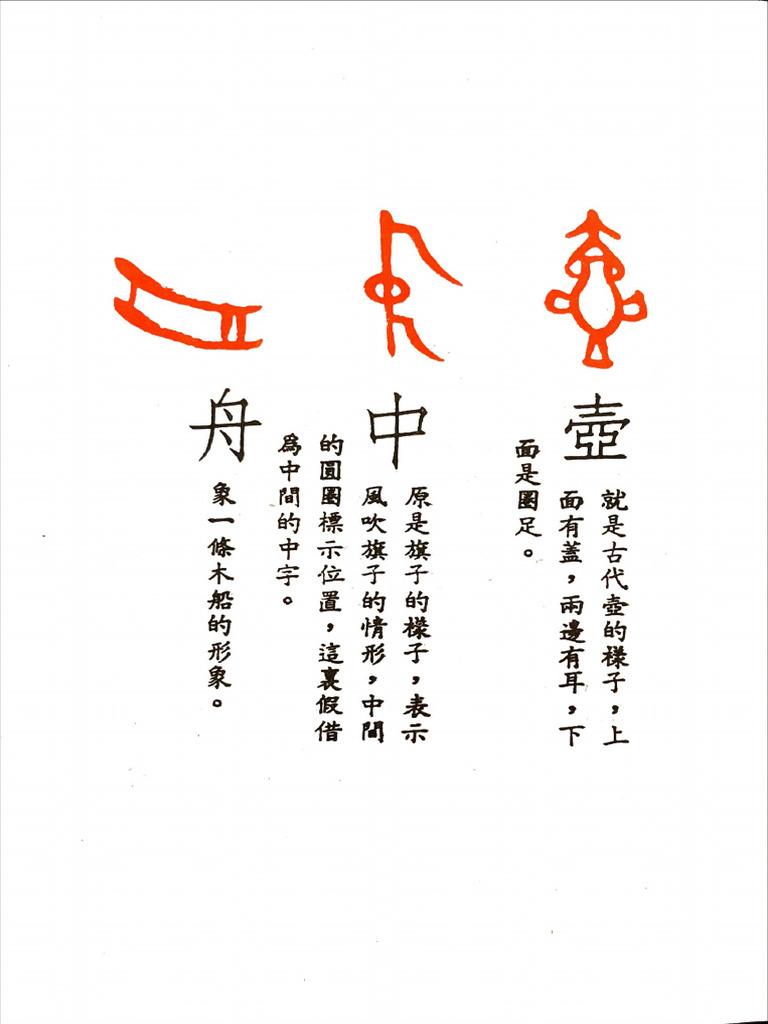 壺
就是古代壺的樣子，上
面有蓋，兩邊有耳，下
面是圈足。
中
原是旗子的樣子，表示
風吹旗子的情形，中間
的圓圈標示位置，這裏假借
爲中間的中字。
舟
象一條木船的形象。